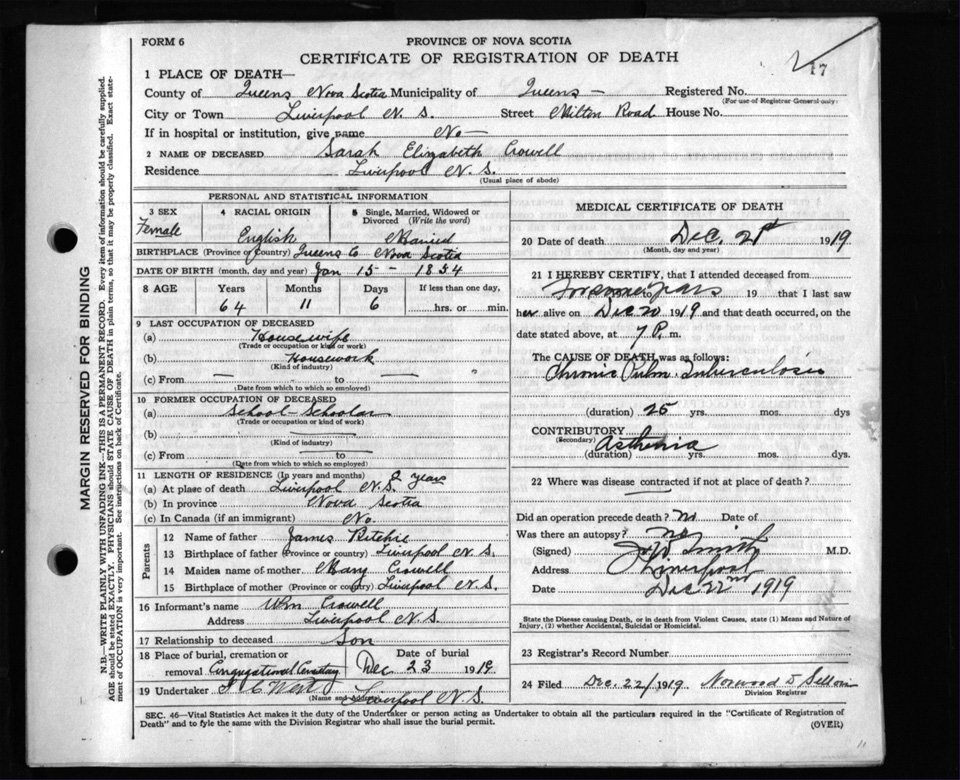 FORM 6
PROVINCE OF NOVA SCOTIA
CERTIFICATE OF REGISTRATION OF DEATH
17
1 PLACE OF DEATH—
County of Queens Nova Scotia Municipality of Queens — Registered No.
(For use of Registrar General only)
City or Town Liverpool N. S. Street Milton Road House No.
If in hospital or institution, give name No —
2 NAME OF DECEASED Sarah Elizabeth Crowell
Residence Liverpool N. S.
(Usual place of abode)
PERSONAL AND STATISTICAL INFORMATION
3 SEX Female
4 RACIAL ORIGIN English
5 Single, Married, Widowed or Divorced (Write the word) Married
BIRTHPLACE (Province or country) Queens Co Nova Scotia
DATE OF BIRTH (month, day and year) Jan 15 - 1854
8 AGE Years 64 Months 11 Days 6 If less than one day, ....... hrs. or ....... min.
9 LAST OCCUPATION OF DECEASED
(a) Housewife
(Trade or occupation or kind of work)
(b) Housework
(Kind of industry)
(c) From — to —
(Date from which to which so employed)
10 FORMER OCCUPATION OF DECEASED
(a) School-Schoolar
(Trade or occupation or kind of work)
(b) —
(Kind of industry)
(c) From — to —
(Date from which to which so employed)
11 LENGTH OF RESIDENCE (In years and months) 2 years
(a) At place of death Liverpool N.S.
(b) In province Nova Scotia
(c) In Canada (if an immigrant) No.
Parents
12 Name of father James Ritchie
13 Birthplace of father (Province or country) Liverpool N. S.
14 Maiden name of mother Mary Crowell
15 Birthplace of mother (Province or country) Liverpool N. S.
16 Informant's name Wm Crowell
Address Liverpool N. S.
17 Relationship to deceased Son
18 Place of burial, cremation or removal Congregational Cemetary Date of burial Dec 23 1919
19 Undertaker West
(Name and Address) Liverpool N. S.
MEDICAL CERTIFICATE OF DEATH
20 Date of death Dec. 21st 1919
(Month, day and year)
21 I HEREBY CERTIFY, that I attended deceased from
for some years to 19 that I last saw
her alive on Dec 20 1919 and that death occurred, on the
date stated above, at 7 P. m.
The CAUSE OF DEATH was as follows:
Chronic Pulm. Tuberculosis
(duration) 25 yrs. mos. dys
CONTRIBUTORY (Secondary) Asthenia
(duration) yrs. mos. dys.
22 Where was disease contracted if not at place of death?
—
Did an operation precede death? No Date of
Was there an autopsy? No
(Signed) Smith M.D.
Address Liverpool
Date Dec 22nd 1919
State the Disease causing Death, or in death from Violent Causes, state (1) Means and Nature of Injury, (2) whether Accidental, Suicidal or Homicidal.
23 Registrar's Record Number
24 Filed Dec. 22/1919 Norwood
Division Registrar
SEC. 46—Vital Statistics Act makes it the duty of the Undertaker or person acting as Undertaker to obtain all the particulars required in the "Certificate of Registration of
Death" and to fyle the same with the Division Registrar who shall issue the burial permit.
(OVER)
11
MARGIN RESERVED FOR BINDING
N.B.—WRITE PLAINLY WITH UNFADING INK—THIS IS A PERMANENT RECORD. Every item of information should be carefully supplied.
AGE should be stated EXACTLY. PHYSICIANS should STATE CAUSE OF DEATH in plain terms, so that it may be properly classified. Exact statement of OCCUPATION is very important. See instructions on back of Certificate.